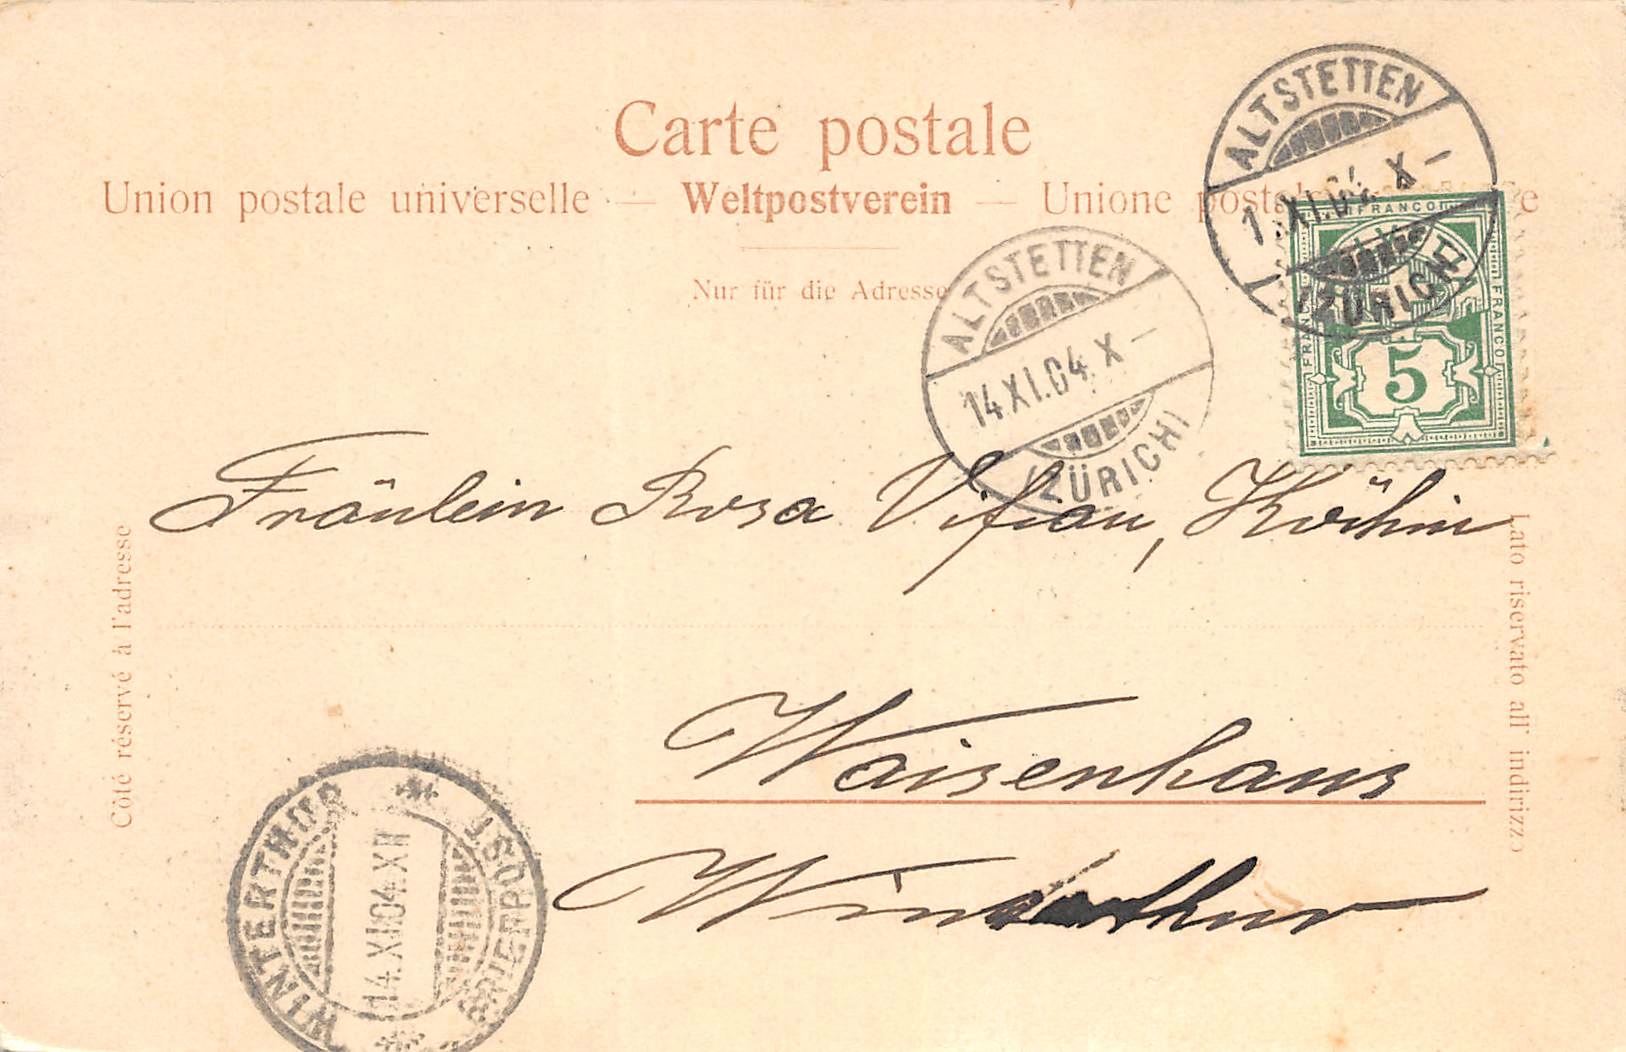 Carte postale
Union postale universelle — Weltpostverein — Unione postale
Nur für die Adresse
ALTSTETTEN
14.XI.04. X –
(ZÜRICH)
ALTSTETTEN
14.XI.04. X –
(ZÜRICH)
FRANCO
FRANCO
FRANCO
5
Fräulein Rosa Vifian, Köchin
Waisenhaus
Winterthur
Côté réservé à l'adresse
Lato riservato all' indirizzo
WINTERTHUR
14.XI.04.XII
BRIEFPOST